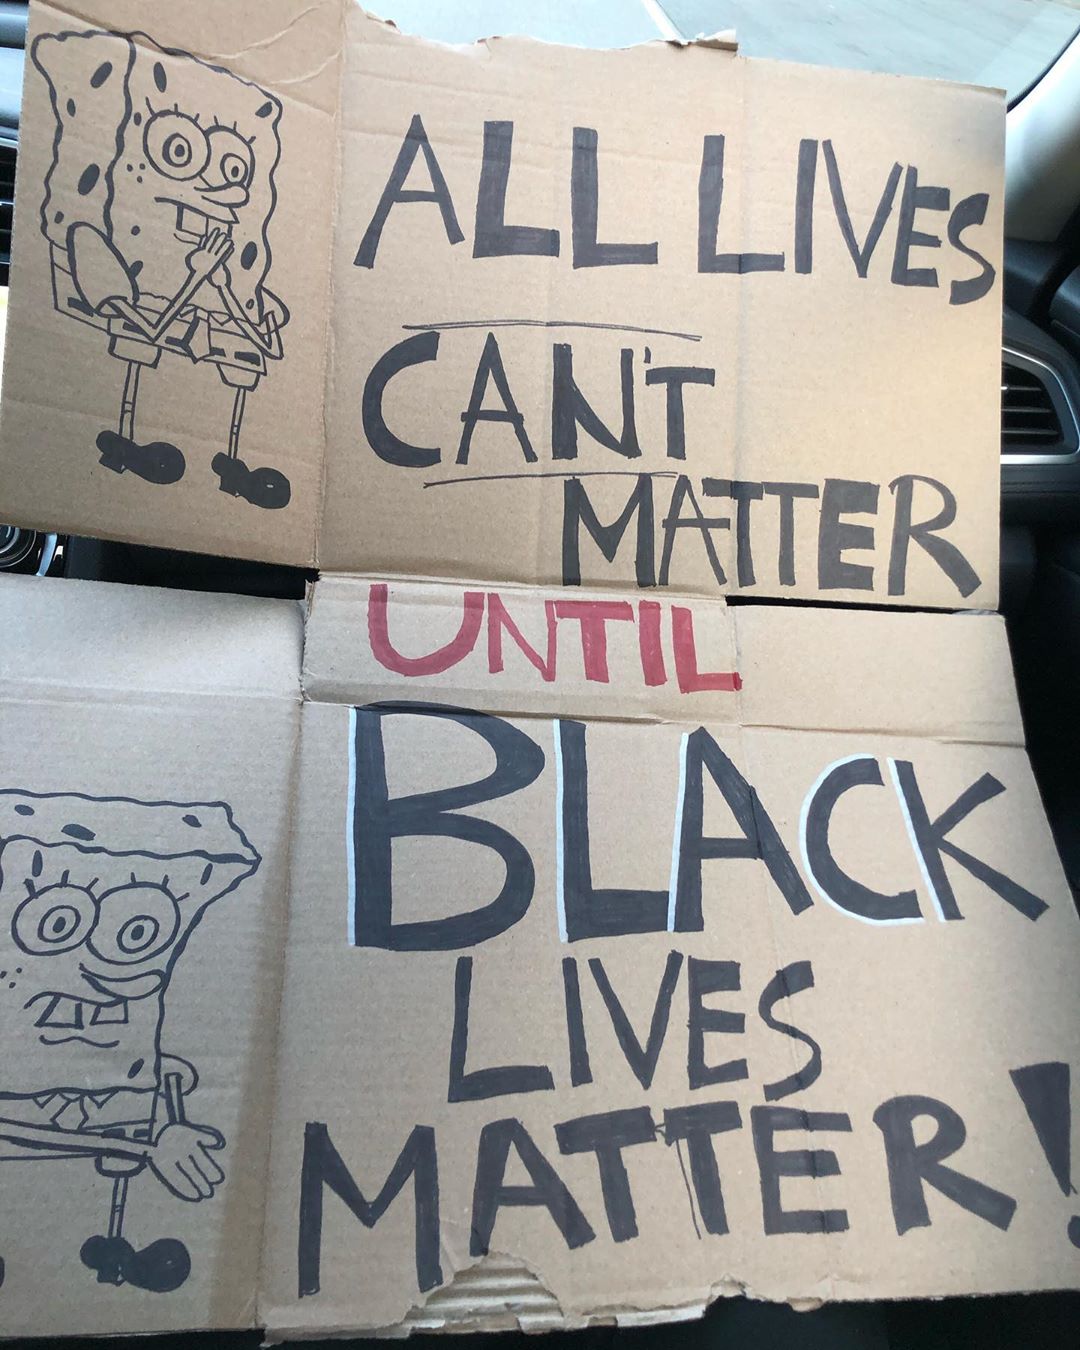 ALL LIVES
CAN'T
MATTER
UNTIL
BLACK
LIVES
MATTER!